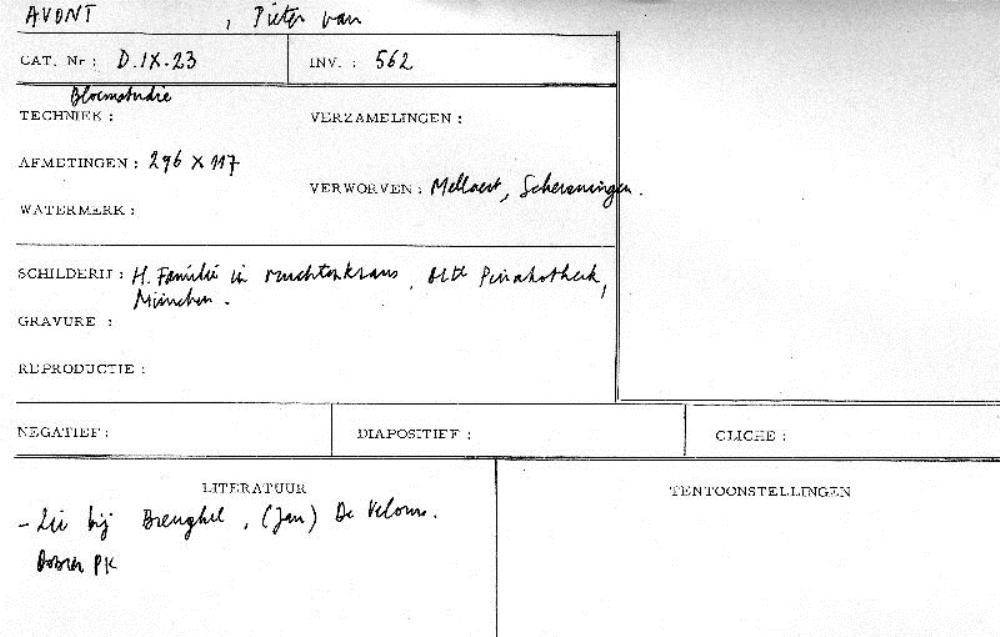 AVONT , Pieter van
CAT. Nr : D.IX.23
INV. : 562
Bloemstudie
TECHNIEK :
VERZAMELINGEN :
AFMETINGEN : 296 X 117
VERWORVEN : Mellaert, Scheveningen.
WATERMERK :
SCHILDERIJ : H. Familie in vruchtenkrans, Alte Pinakotheek,
München.
GRAVURE :
REPRODUCTIE :
NEGATIEF :
DIAPOSITIEF :
CLICHE :
LITERATUUR
- Zie bij Breughel, (Jan) De Velours.
PK
TENTOONSTELLINGEN